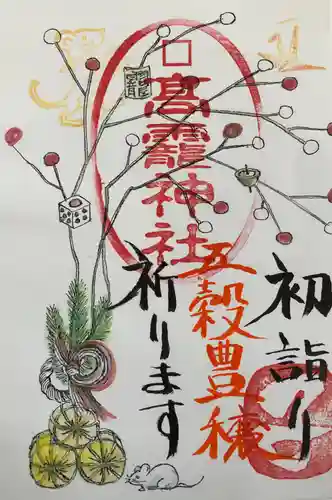 初詣り
五穀豊穣
高龗神社
祈ります